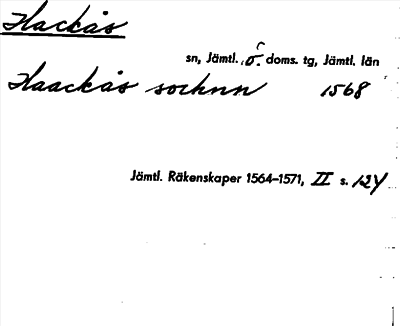 Hackås
sn, Jämtl. ö. doms. tg, Jämtl. län
Haackås sochnn 1568
Jämtl. Räkenskaper 1564–1571, II s. 124